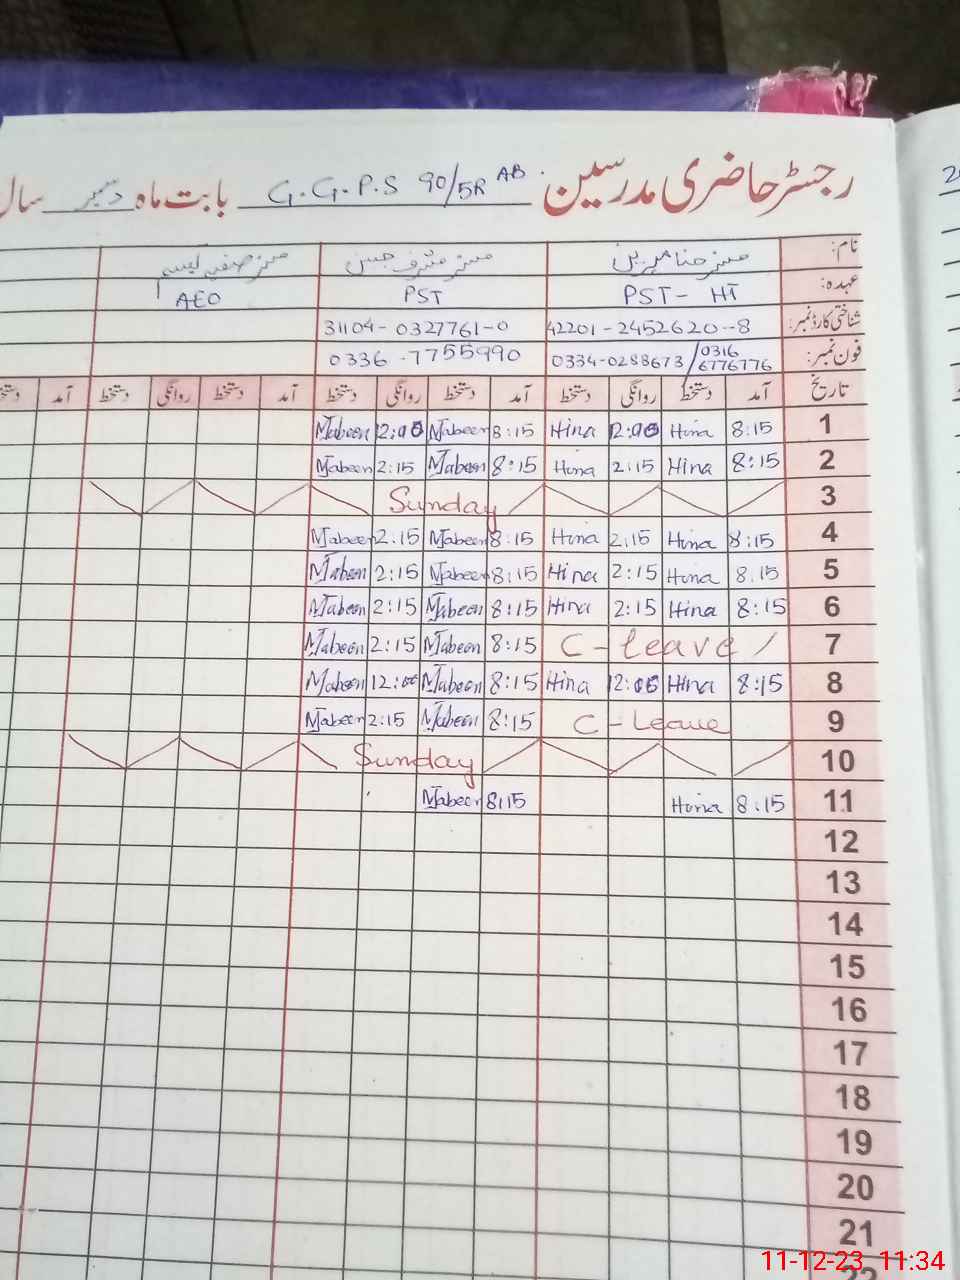 رجسٹر حاضری مدرسین G.G.P.S 90/5R AB. بابت ماہ دسمبر سال
نام: مسز حنا مہرین مسز
عہدہ: PST- HT PST AEO
شناختی کارڈ نمبر: 42201-2452620-8 31104-0327761-0
فون نمبر: 0334-0288673/0316 6776776 0336-7755990
تاریخ آمد دستخط روانگی دستخط آمد دستخط روانگی دستخط آمد دستخط روانگی دستخط آمد
1 8:15 Hina 12:00 Hina 8:15 Mabeen 12:00 Mabeen
2 8:15 Hina 2:15 Hina 8:15 Mabeen 2:15 Mabeen
3 Sunday
4 8:15 Hina 2:15 Hina 8:15 Mabeen 2:15 Mabeen
5 8:15 Hina 2:15 Hina 8:15 Mabeen 2:15 Mabeen
6 8:15 Hina 2:15 Hina 8:15 Mabeen 2:15 Mabeen
7 C-leave 8:15 Mabeen 2:15 Mabeen
8 8:15 Hina 12:00 Hina 8:15 Mabeen 12:00 Mabeen
9 C-Leave 8:15 Mabeen 2:15 Mabeen
10 Sunday
11 8:15 Hina 8:15 Mabeen
12
13
14
15
16
17
18
19
20
21
22
11-12-23 11:34